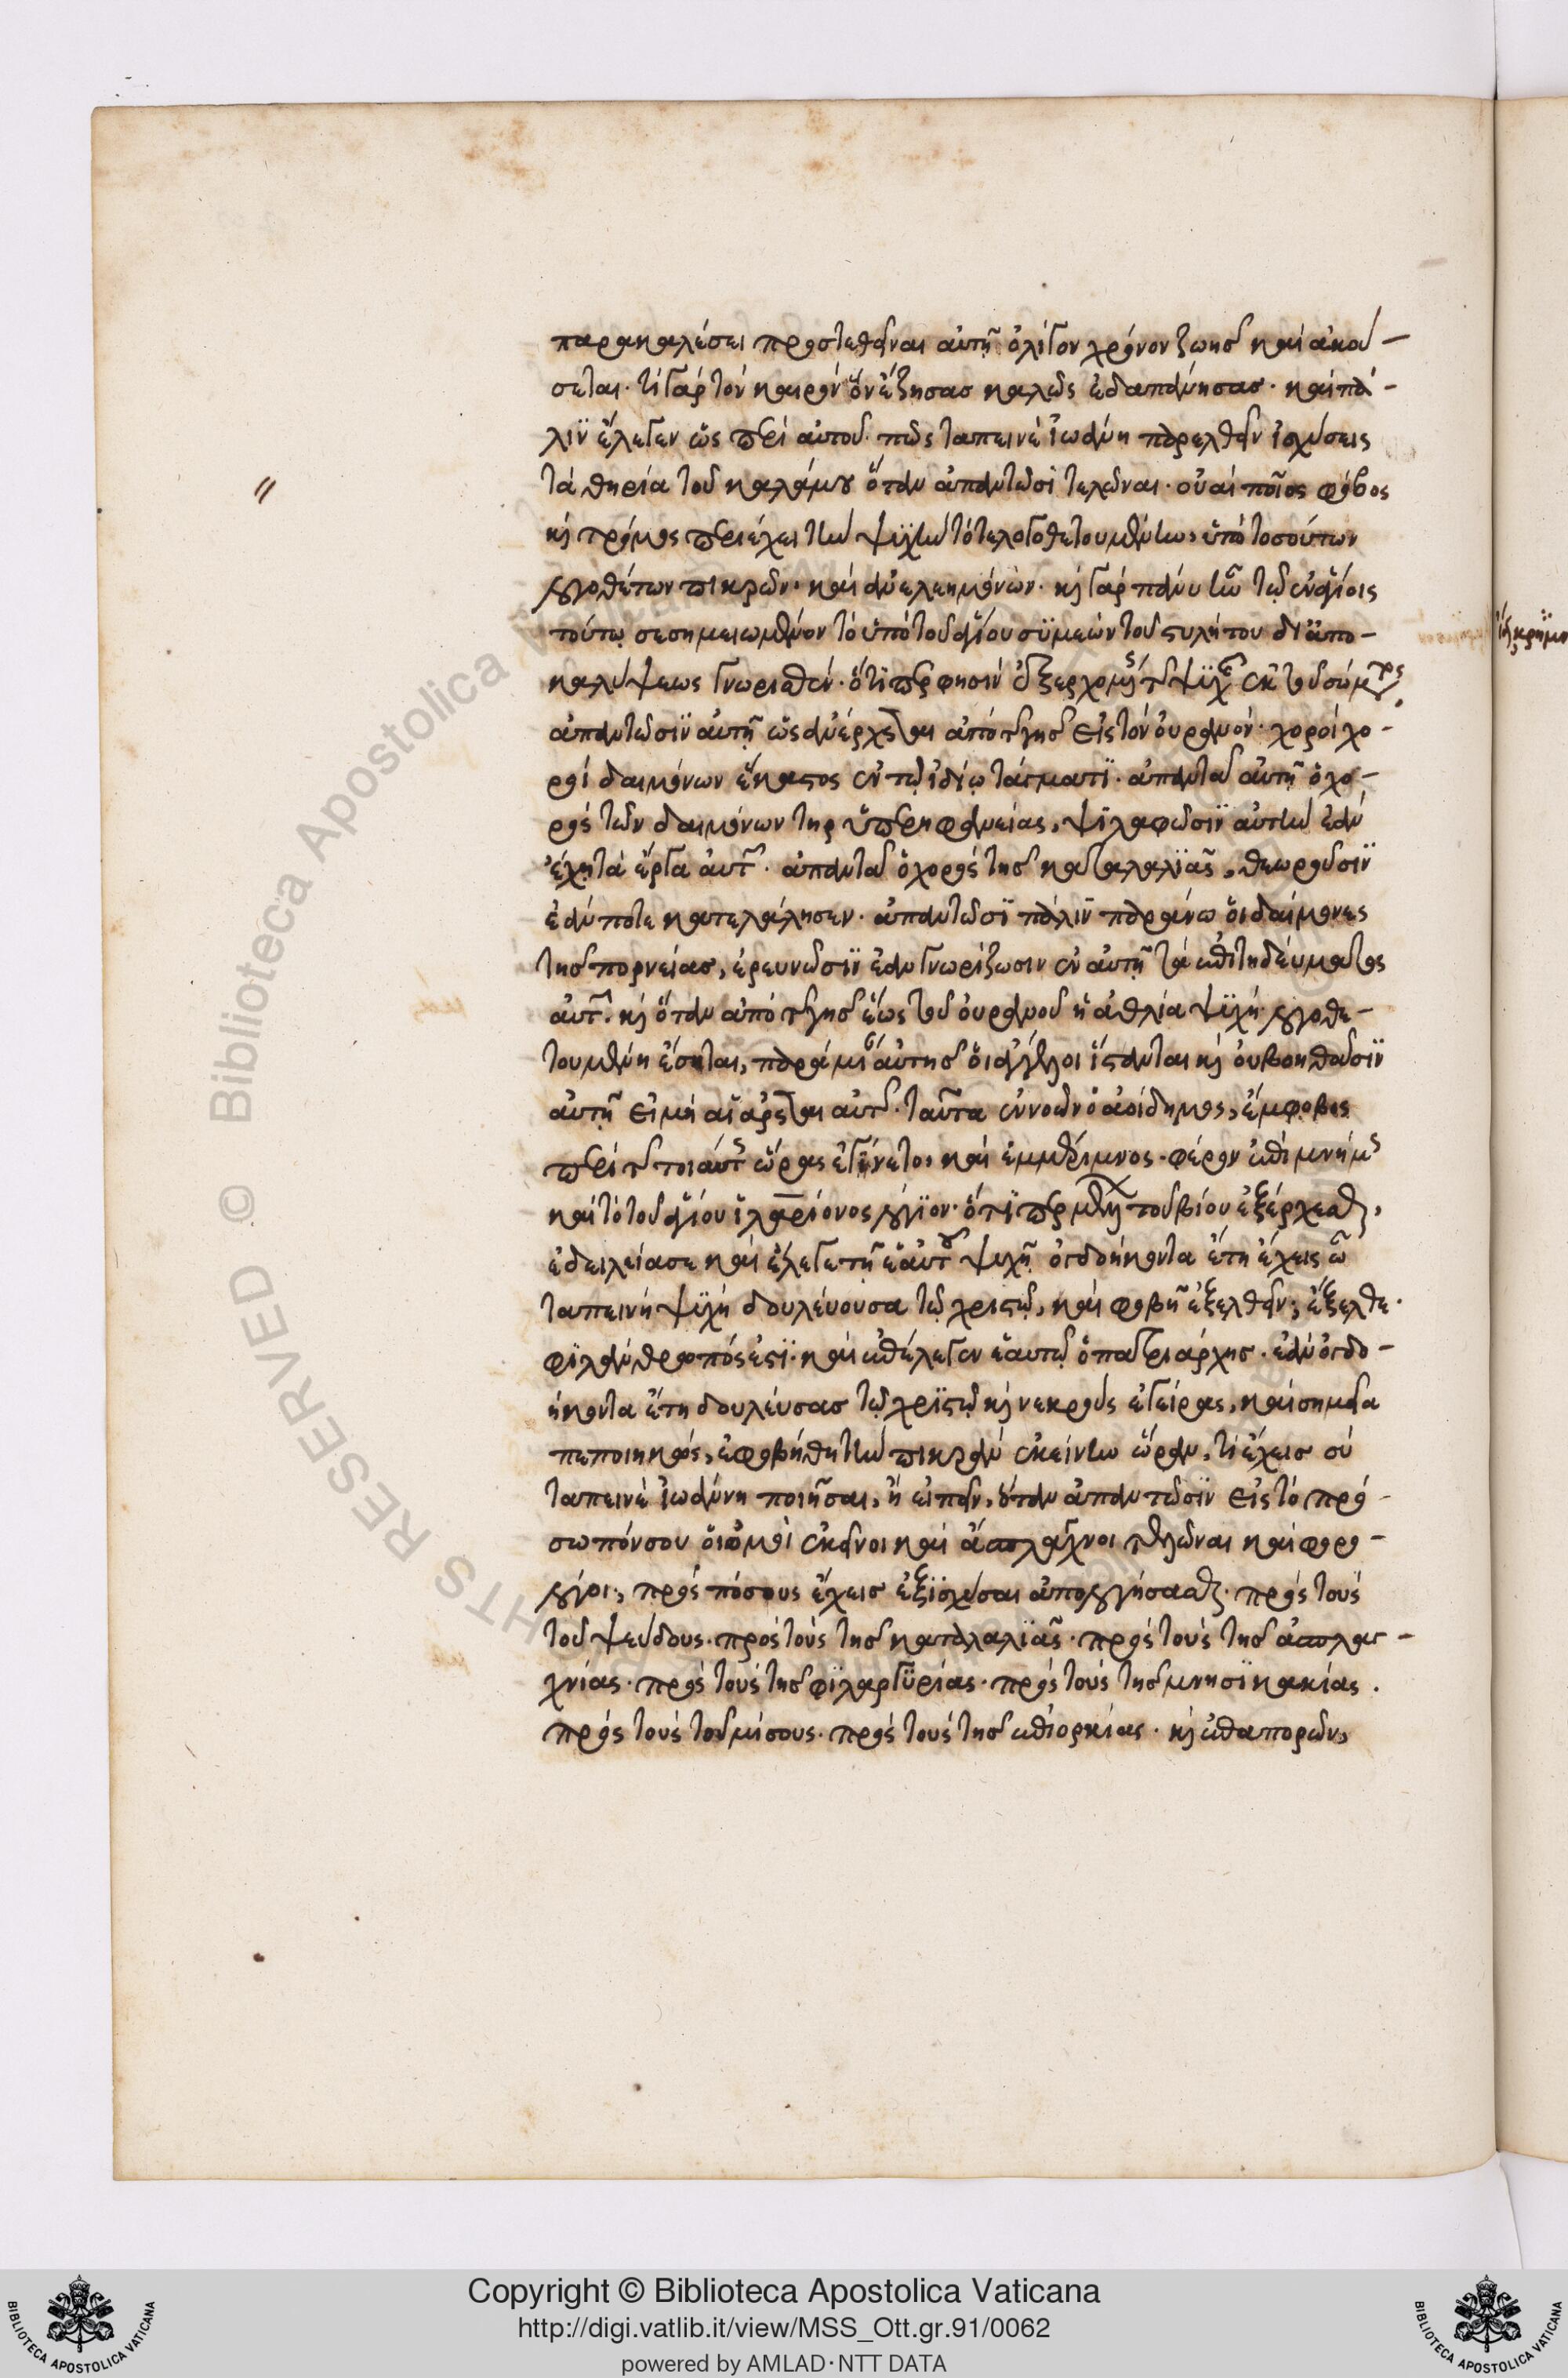 παρακαλέσει προστεθῆναι αὐτῇ ὀλίγον χρόνον ζωῆς καὶ ἀκού-
σεται. τί γὰρ τὸν καιρὸν ὃν ἔζησας καλῶς ἐδαπάνησας. καὶ πά-
λιν ἔλεγεν ὡς περὶ αὐτοῦ. πῶς ταπεινὲ ἰωάννη παρελθεῖν ἰσχύσεις
τὰ θηρία τοῦ καλάμου ὅταν ἀπαντῶσι τελῶναι. οὐαὶ ποῖος φόβος
καὶ τρόμος περιέχει τὴν ψυχὴν τότε λογοθετουμένην, ὑπὸ τοσούτων
λογοθέτων πικρῶν. καὶ ἀνελεημόνων. καὶ γὰρ πάνυ ἦν τῷ ἐν ἁγίοις
τούτῳ σεσημειωμένον τὸ ὑπὸ τοῦ ἁγίου συμεὼν τοῦ στυλίτου δι ἀπο-
καλύψεως γνωρισθέν. ὅτι περ φησὶν ἐξερχομένης τῆς ψυχῆς ἐκ τοῦ σώματος,
ἀπαντῶσιν αὐτῇ ὡς ἀνέρχεται ἀπὸ τῆς γῆς εἰς τὸν οὐρανόν. χοροὶ χο-
ροὶ δαιμόνων ἕκαστος ἐν τῷ ἰδίῳ τάγματι. ἀπαντᾷ αὐτῇ ὁ χο-
ρὸς τῶν δαιμόνων τῆς ὑπερηφανείας, ψιλαφῶσιν αὐτὴν ἐὰν
ἔχῃ τὰ ἔργα αὐτῶν. ἀπαντᾷ ὁ χορὸς τῆς καταλαλιᾶς, θεωροῦσιν
ἐάν ποτε κατελάλησεν. ἀπαντῶσι πάλιν παράνω οἱ δαίμονες
τῆς πορνείας, ἐρευνῶσιν ἐὰν γνωρίζωσιν ἐν αὐτῇ τὰ ἐπιτηδεύματα
αὐτῶν. καὶ ὅταν ἀπὸ τῆς γῆς ἕως τοῦ οὐρανοῦ ἡ ἀθλία ψυχὴ λογοθε-
τουμένη ἔσηται, παρὰ μίαν αὐτῆς οἱ ἄγγελοι ἵστανται καὶ οὐ βοηθοῦσιν
αὐτῇ εἰ μὴ αἱ ἀρεταὶ αὐτῆς. ταῦτα ἐννοῶν ὁ ἀοίδιμος, ἔμφοβος
περὶ τῆς τοιαύτης ὥρας ἐγένετο, καὶ ἐμμέριμνος. φέρων ἐπὶ μνήμης
καὶ τὸ τοῦ ἁγίου ἱλαρίονος λόγιον. ὅτι περ μέλλων τοῦ βίου ἐξέρχεσθαι,
ἐδειλείασε καὶ ἔλεγε τῇ ἑαυτοῦ ψυχῇ ὀγδοήκοντα ἔτη ἔχεις ὦ
ταπεινὴ ψυχὴ δουλεύουσα τῷ χριστῷ, καὶ φοβῇ ἐξελθεῖν; ἔξελθε.
φιλάνθρωπός ἐστι. καὶ ἐπέλεγεν ἑαυτῷ ὁ πατριάρχης. ἐὰν ὀγδο-
ήκοντα ἔτη δουλεύσας τῷ χριστῷ καὶ νεκροὺς ἐγείρας, καὶ σημεῖα
πεποιηκὼς, ἐφοβήθη τὴν πικρὰν ἐκείνην ὥραν, τί ἔχεις σὺ
ταπεινὲ ἰωάννη ποιῆσαι, ἢ εἰπεῖν, ὅταν ἀπαντῶσιν εἰς τὸ πρό-
σωπόν σου οἱ ὠμοὶ ἐκεῖνοι καὶ ἄσπλαγχνοι τελῶναι καὶ φορο-
λόγοι, πρὸς πόσους ἔχεις ἐξισχύσαι ἀπολογήσασθαι. πρὸς τοὺς
τοῦ ψεύδους. πρὸς τοὺς τῆς καταλαλιᾶς. πρὸς τοὺς τῆς ἀσπλαγ-
χνίας. πρὸς τοὺς τῆς φιλαργυρίας. πρὸς τοὺς τῆς μνησικακίας.
πρὸς τοὺς τοῦ μίσους. πρὸς τοὺς τῆς ἐπιορκίας. καὶ ἐπαπορῶν,
Copyright © Biblioteca Apostolica Vaticana
http://digi.vatlib.it/view/MSS_Ott.gr.91/0062
powered by AMLAD·NTT DATA